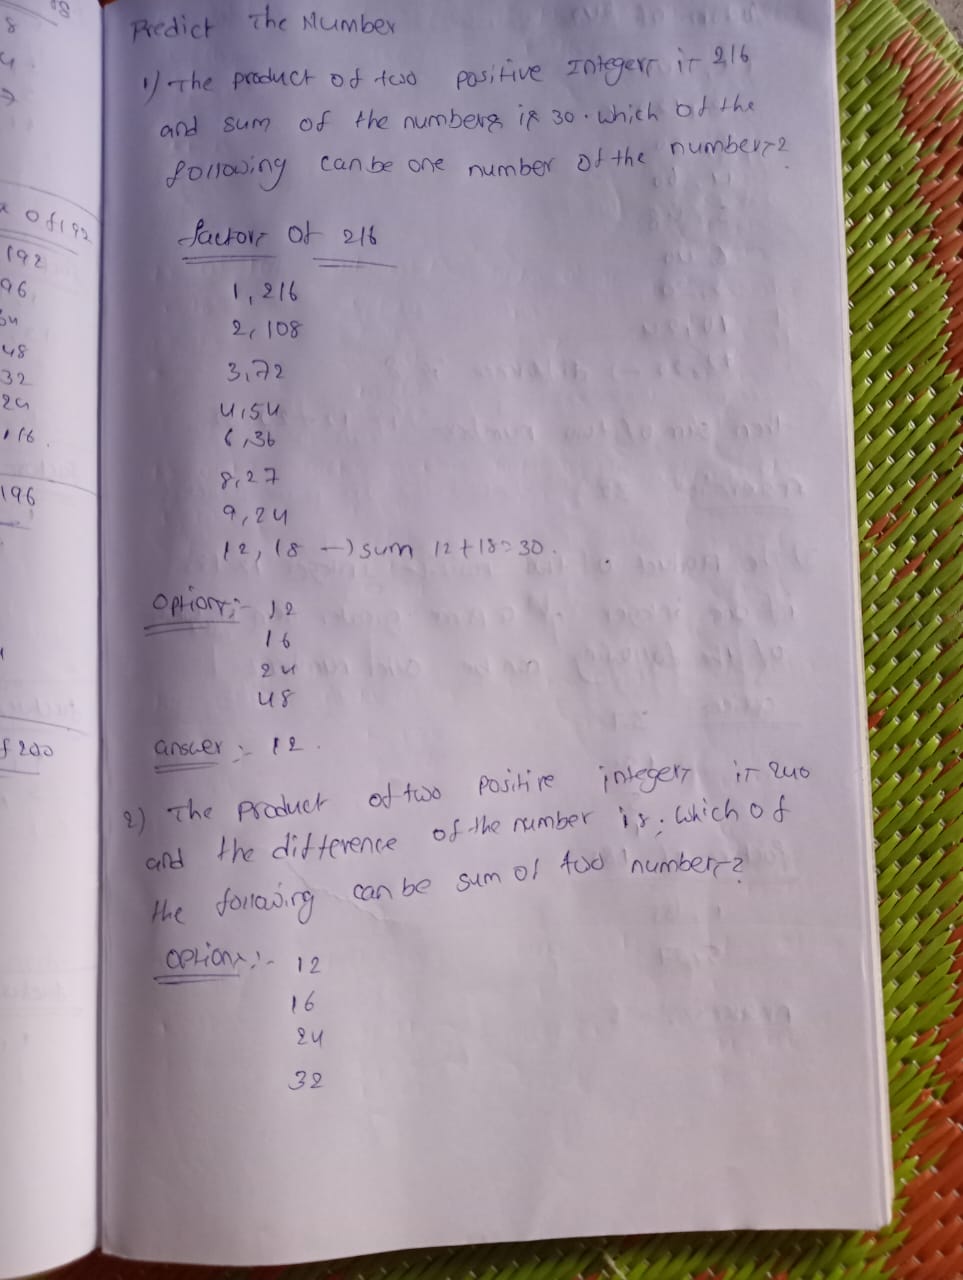 8
192
96
48
32
24
, 16.
196
f 200
Predict The Number
1) The product of two positive Integers is 216
and sum of the numbers is 30. which of the
following can be one number of the numbers?
factors of 216
1, 216
2, 108
3,72
4,54
6,36
8,27
9,24
12, 18 -> sum 12+18=30.
Options:- 12
16
24
48
answer :- 12.
2) The product of two positive integers is 240
and the difference of the number is 8. which of
the following can be sum of two numbers?
Options:- 12
16
24
32